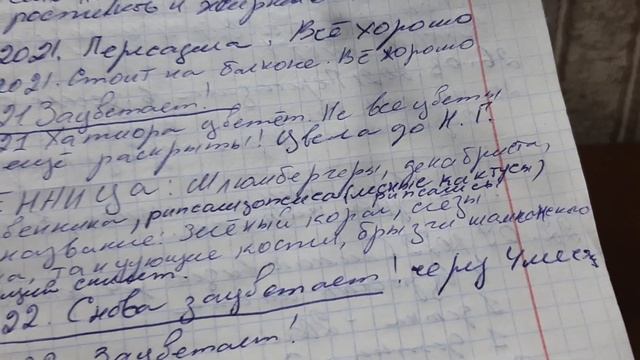 ростить и
2021. Пересадила. Всё хорошо
2021. Стоит на балконе. Всё хорошо
21 Зацветает!
21 Хатиора цветёт. Не все цветы
ещё раскрыты! Цвела до Н. Г.
ЕННИЦА: Шлюмбергеры, декабриста,
венника, рипсалидопсиса (лесные кактусы)
название: зелёный корал, рипсалис, слёзы
а, танцующие кости, брызги шампанского
щий скелет.
22. Снова зацветает! через 4 месяц
Зацветает!